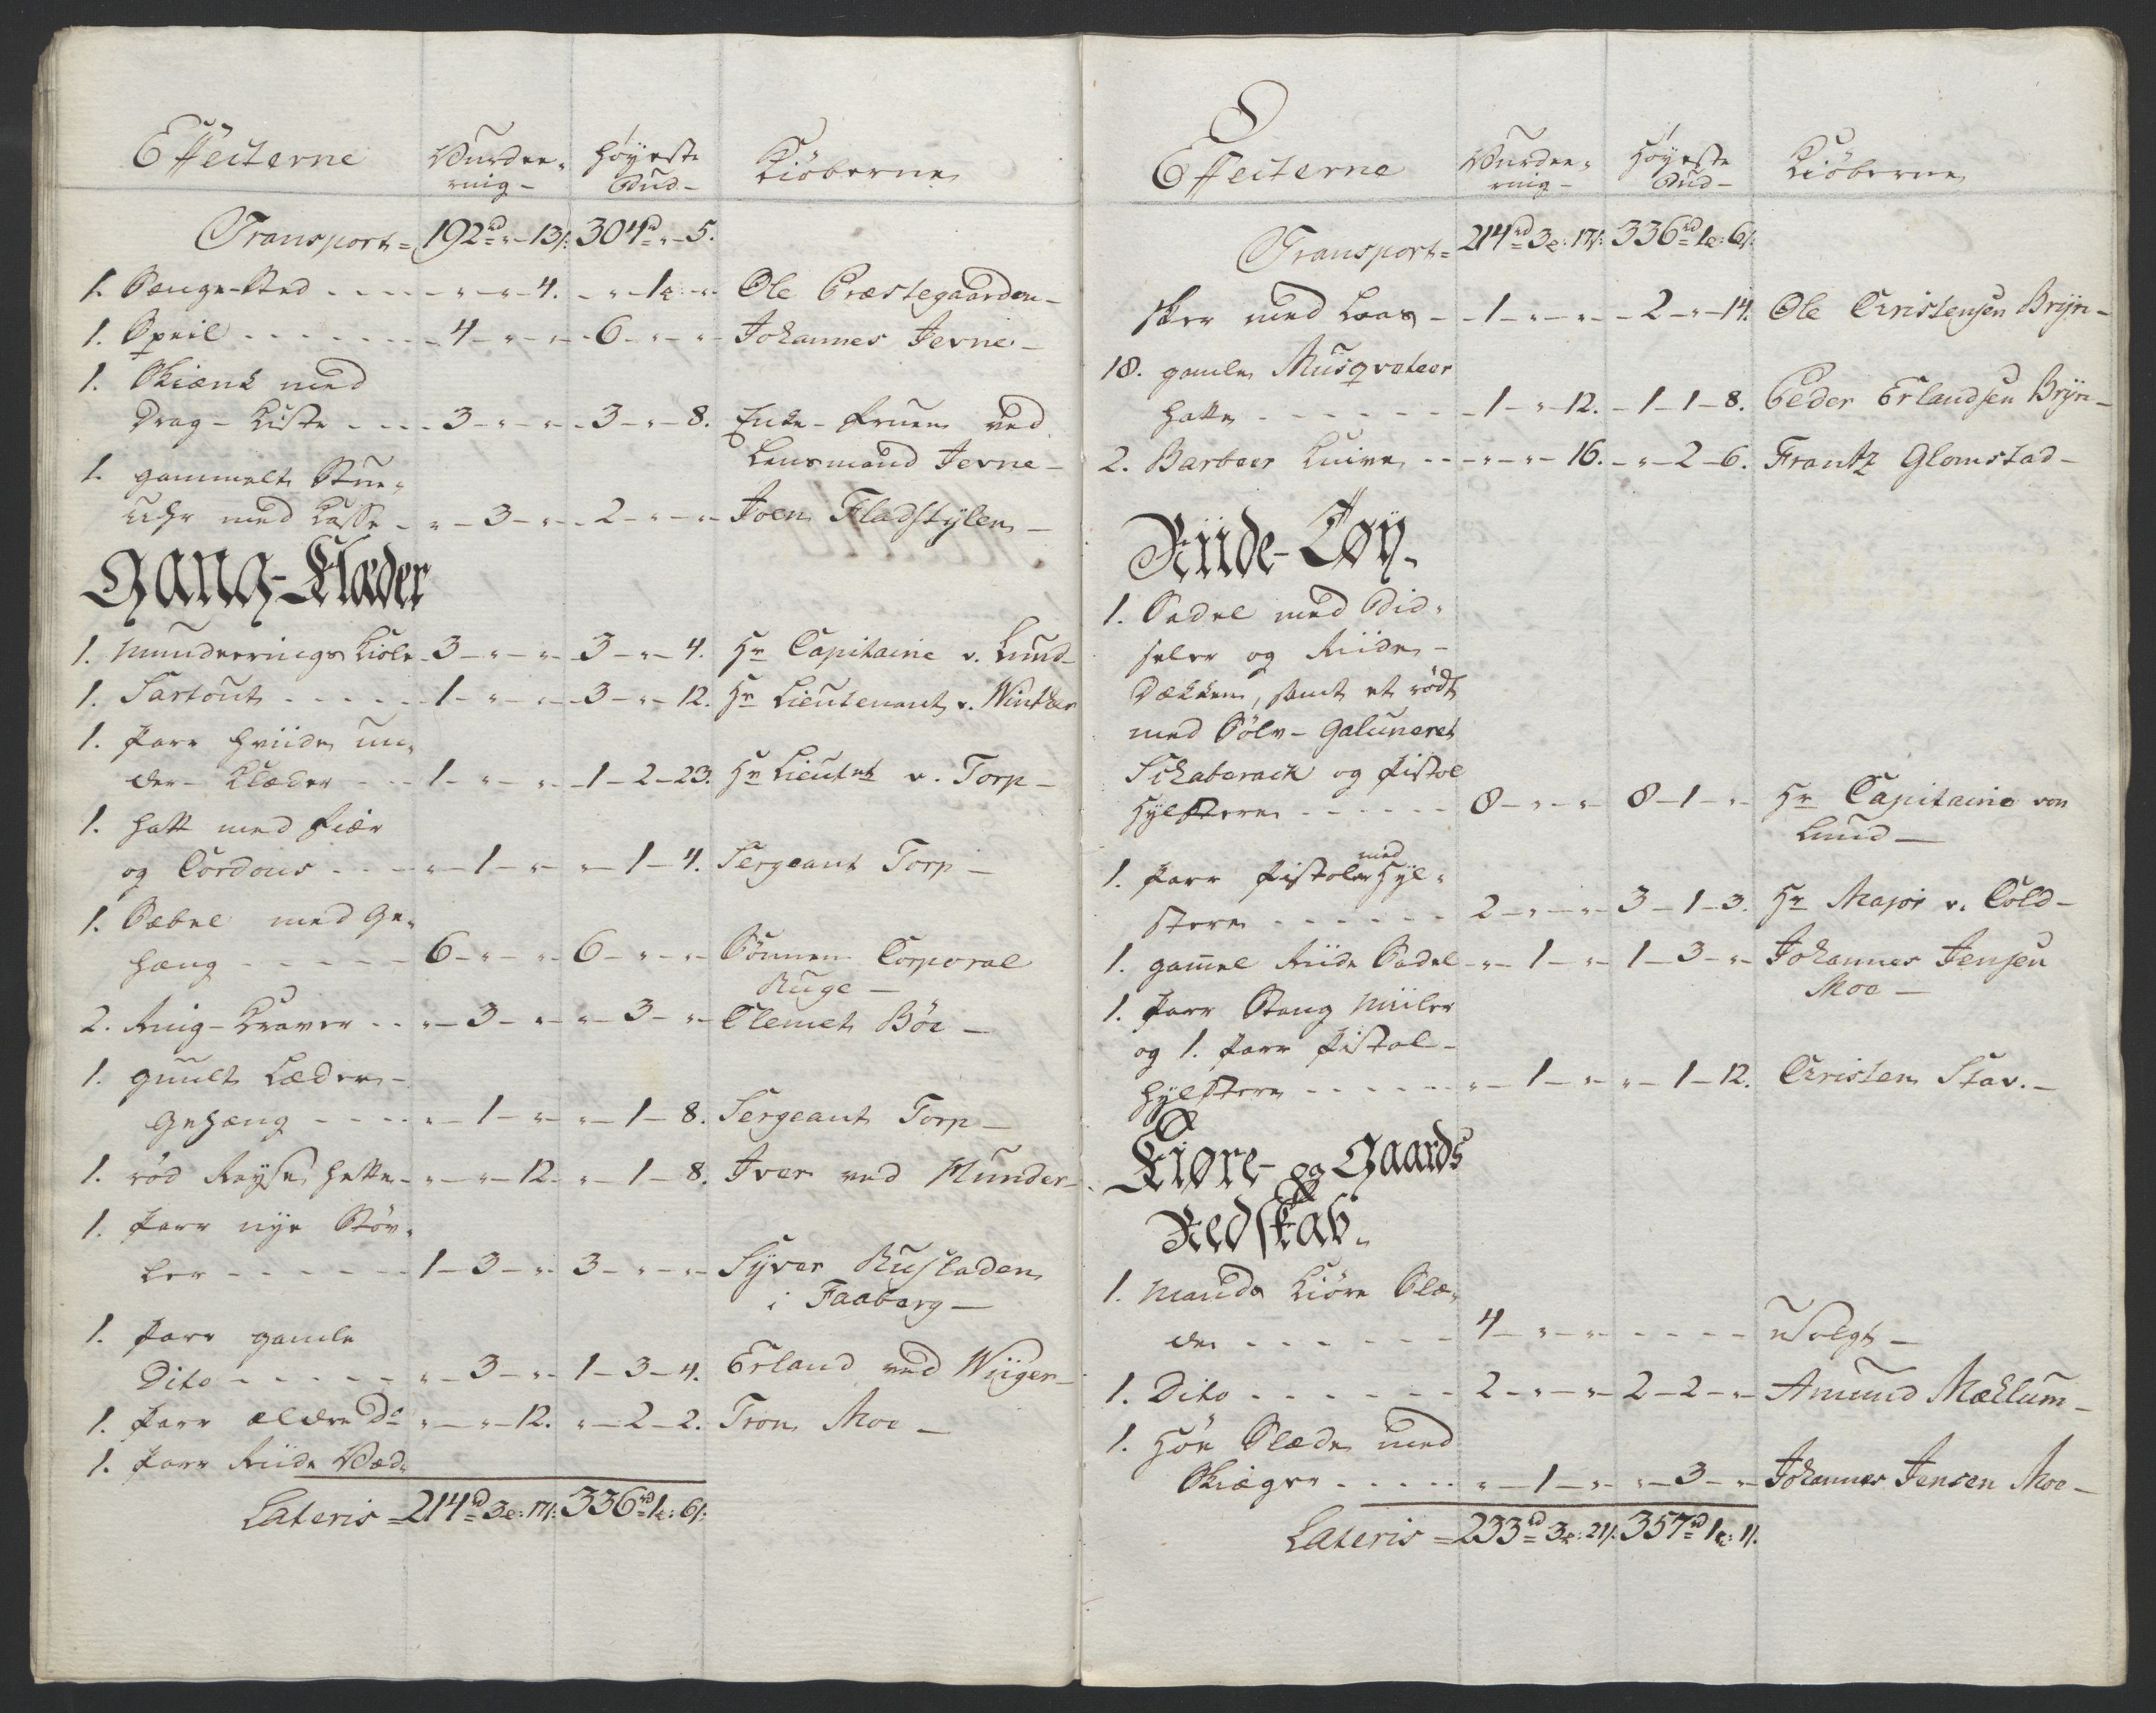 Effecterne Vurdee- Høyeste Kiöberne
ring- Bud-
Transport= 192rd " - 13s: 304rd " - 5.
1. Senge-Sted - - - - " - " - 4. - " - 1 - " - Ole Præstegaarden-
1. Speil - - - - 4 - " - " - 6 - " - " - Johannes Jevne-
1. Skiænk med
Drag-Kiste - - - 3 - " - " - 3 - " - 8. Enke-Fruen ved
Lensmand Jevne-
1. gammelt Stue-
Uhr med Kasse - " - 3 - " - 2 - " - " - Joen Fladstylen-
Gang-Klæder
1. Munderings Kiole - 3 - " - " - 3 - " - 4. Hr Capitaine v. Lund-
1. Sartout - - - - 1 - " - " - 3 - " - 12. Hr Lieutenant v. Winther
1. Parr hviide un-
der-Klæder - - 1 - " - " - 1 - 2 - 23. Hr Lieutnt v. Torp-
1. Hatt med Fiær
og Cordons - - - " - 1 - " - " - 1 - 4. Sergeant Torp-
1. Sæbel med Ge-
hæng - - - - 6 - " - " - 6 - " - " - Sönnen Corporal
Ruge-
2. Ring-Kraver - - " - 3 - " - " - 3 - " - Clemet Böe-
1. guult Læder-
Gehæng - - - - " - 1 - " - " - 1 - 8. Sergeant Torp-
1. rød Reyse Hette - " - " - 12. " - 1 - 8. Iver ved Hunder-
1. Parr nye Støv-
ler - - - - - 1 - 3 - " - 3 - " - " - Syver Rusladen
i Faaberg-
1. Parr gamle
Dito - - - - - " - 3 - " - 1 - 3 - 4. Erland ved Wiiger-
1. Parr ældre Do " - " - 12. " - 2 - 2. Tron Moe-
1. Parr Riide Vad-
Lateris = 214rd 3o: 17s: 336rd 1o: 6s:
Effecterne Vurdee- Høyeste Kiöberne
ring- Bud-
Transport= 214rd 3o: 17s: 336rd 1o: 6s:
sker med Laas - - 1 - " - " - 2 - " - 14. Ole Christensen Bryn-
18. gamle Musqveteer
Hatte - - - - - 1 - " - 12. - 1 - 1 - 8. Peder Erlandsen Bryn-
2. Barbeer Knive - - " - " - 16. - " - 2 - 6. Frantz Glomstad-
Riide-Tøy-
1. Sadel med Bid-
seler og Riide-
Dækken, samt et rødt
med Sölv-Galuneret
Schaberack og Pistol
Hylstere - - - - - 8 - " - " - 8 - 1 - " - Hr Capitaine von
Lund-
med
1. Parr Pistoler Hyl-
stere - - - - - 2 - " - " - 3 - 1 - 3. Hr Major v. Cold-
1. gamel Riide Sadel - " - 1 - " - 1 - 3 - " - Johannes Jensen
Moe-
1. Parr Stang Miiler
og 1. Parr Pistol-
Hylstere - - - - - " - 1 - " - " - 1 - 12. Christen Stav.-
Kiøre- og Gaards
Redskab.
1. Mands Kiöre Slæ-
de - - - - - 4 - " - " - - - - Usolgt-
1. Dito - - - - - 2 - " - " - 2 - 2 - " - Amund Mæhlum-
1. Höe Slæde med
Skiæger - - - - " - 1 - " - " - 3 - " - Johannes Jensen Moe-
Lateris = 233rd 3o: 21s: 357rd 1o: 1s.